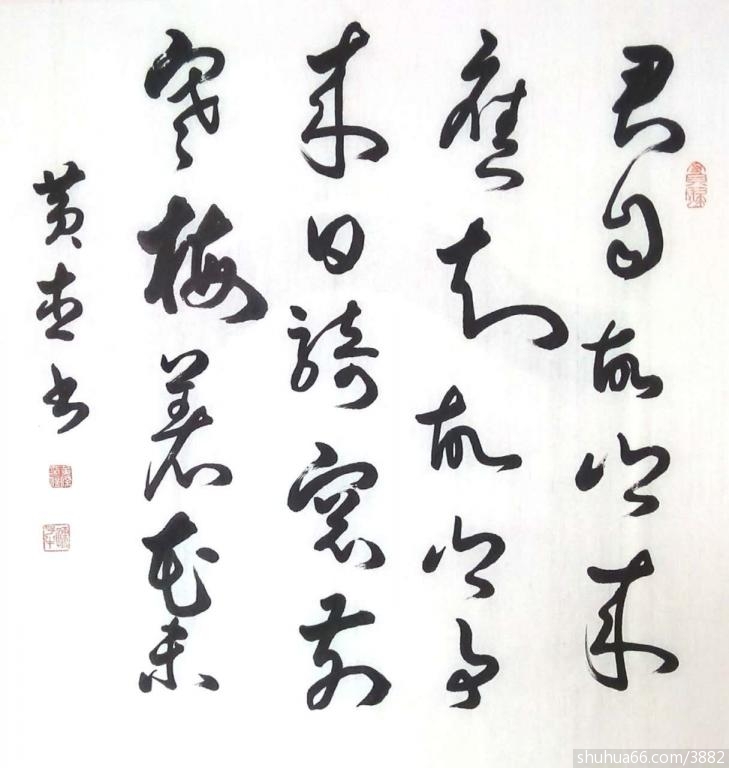 君自故鄉来
應知故鄉事
来日綺窗前
寒梅著花未
黄书
shuhua66.com/3882